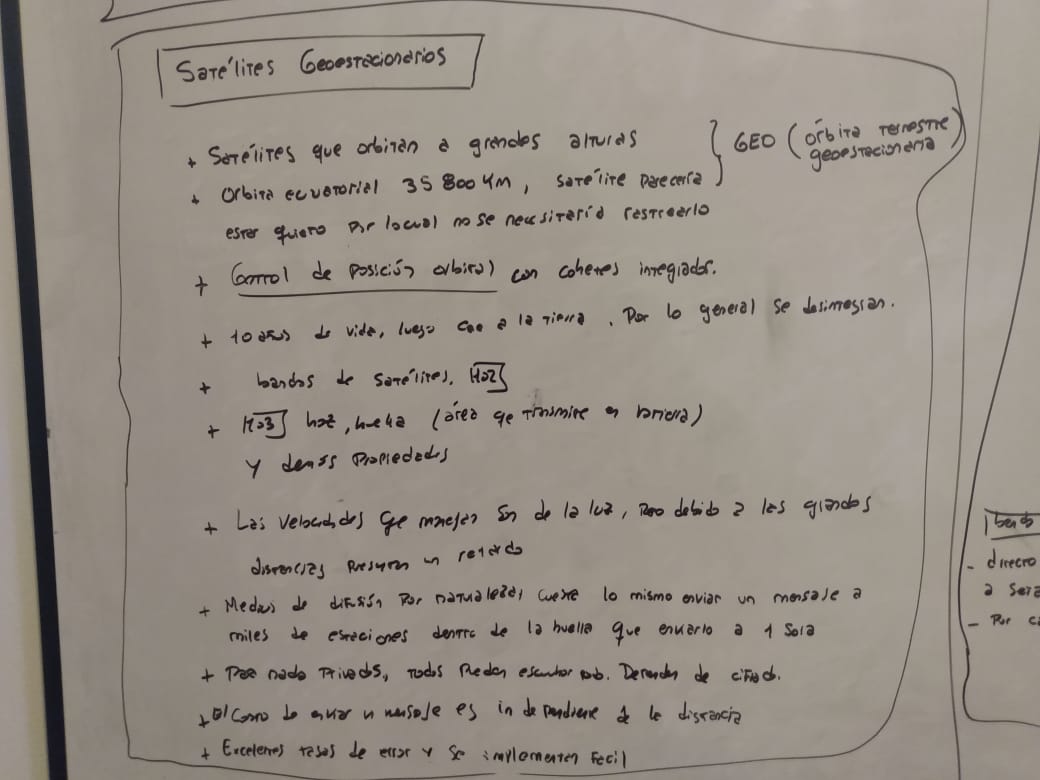 Satélites Geoestacionarios
+ Satélites que orbitan a grandes alturas } GEO (órbita terrestre geoestacionaria)
+ Orbita ecuatorial 35 800 km, satélite pareceria
estar quieto por locual no se necesitaria rastrearlo
+ Control de posición orbital con cohetes integrados.
+ 10 años de vida, luego cae a la tierra. Por lo general se desintegran.
+ bandas de satélites. H02
+ H03 haz, huella (área qe transmite
y demás propiedades
+ Las velocidades qe manejan son de la luz, pero debido a las grandes
distancias presentan un retardo
+ Medios de difusión por naturaleza, cuesta lo mismo enviar un mensaje a
miles de estaciones dentro de la huella que enviarlo a 1 sola
+ Par nada privados, todos pueden escuchar Dependen de cifrad.
+ El costo de enviar un mensaje es independiente de la distancia
+ Excelentes tasas de error y se implementan facil
directo
a
- Por